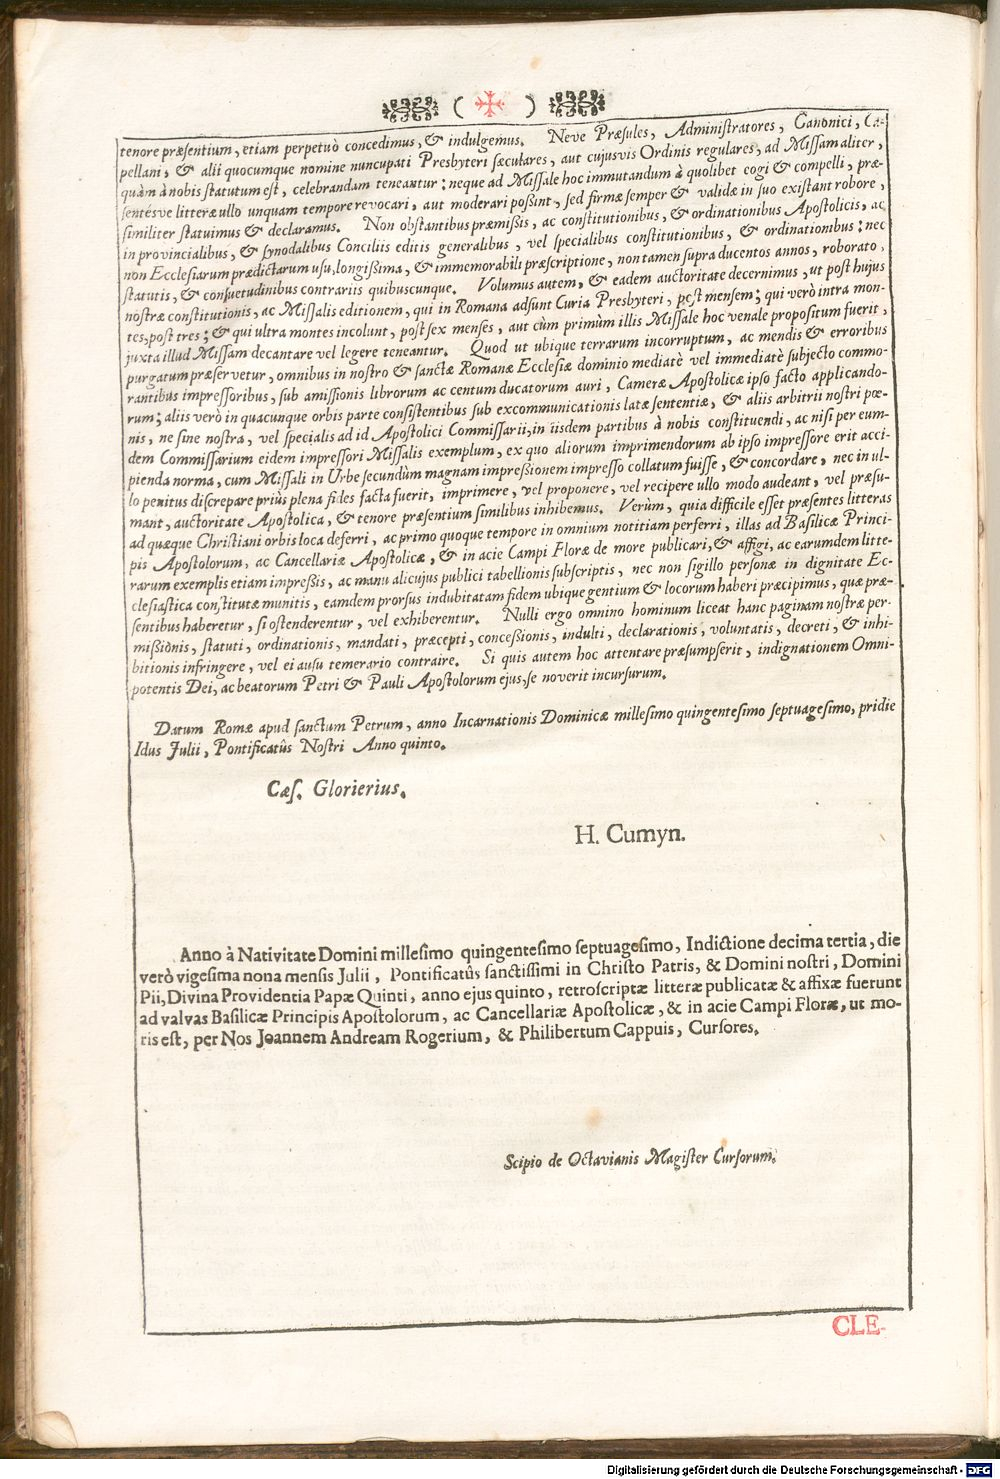 ( ✠ )
tenore præsentium, etiam perpetuò concedimus, & indulgemus. Neve Præsules, Administratores, Canonici, Ca-
pellani, & alii quocumque nomine nuncupati Presbyteri sæculares, aut cujusvis Ordinis regulares, ad Missam aliter,
quàm à nobis statutum est, celebrandam teneantur: neque ad Missale hoc immutandum à quolibet cogi & compelli, præ-
sentésve litteræ ullo unquam tempore revocari, aut moderari possint, sed firmæ semper & validæ in suo existant robore,
similiter statuimus & declaramus. Non obstantibus præmissis, ac constitutionibus, & ordinationibus Apostolicis, ac
in provincialibus, & synodalibus Conciliis editis generalibus, vel specialibus constitutionibus, & ordinationibus: nec
non Ecclesiarum prædictarum usu, longissima, & immemorabili præscriptione, non tamen supra ducentos annos, roborato,
statutis, & consuetudinibus contrariis quibuscunque. Volumus autem, & eadem auctoritate decernimus, ut post hujus
nostræ constitutionis, ac Missalis editionem, qui in Romana adsunt Curia Presbyteri, post mensem; qui verò intra mon-
tes, post tres; & qui ultra montes incolunt, post sex menses, aut cùm primùm illis Missale hoc venale propositum fuerit,
juxta illud Missam decantare vel legere teneantur. Quod ut ubique terrarum incorruptum, ac mendis & erroribus
purgatum præservetur, omnibus in nostro & sanctæ Romanæ Ecclesiæ dominio mediatè vel immediatè subjecto commo-
rantibus impressoribus, sub amissionis librorum ac centum ducatorum auri, Cameræ Apostolicæ ipso facto applicando-
rum; aliis verò in quacunque orbis parte consistentibus sub excommunicationis latæ sententiæ, & aliis arbitrii nostri pœ-
nis, ne sine nostra, vel specialis ad id Apostolici Commissarii, in iisdem partibus à nobis constituendi, ac nisi per eum-
dem Commissarium eidem impressori Missalis exemplum, ex quo aliorum imprimendorum ab ipso impressore erit acci-
pienda norma, cum Missali in Urbe secundùm magnam impressionem impresso collatum fuisse, & concordare, nec in ul-
lo penitus discrepare priùs plena fides facta fuerit, imprimere, vel proponere, vel recipere ullo modo audeant, vel præsu-
mant, auctoritate Apostolica, & tenore præsentium similibus inhibemus. Verùm, quia difficile esset præsentes litteras
ad quæque Christiani orbis loca deferri, ac primo quoque tempore in omnium notitiam perferri, illas ad Basilicæ Princi-
pis Apostolorum, ac Cancellariæ Apostolicæ, & in acie Campi Floræ de more publicari, & affigi, ac earumdem litte-
rarum exemplis etiam impressis, ac manu alicujus publici tabellionis subscriptis, nec non sigillo personæ in dignitate Ec-
clesiastica constitutæ munitis, eamdem prorsus indubitatam fidem ubique gentium & locorum haberi præcipimus, quæ præ-
sentibus haberetur, si ostenderentur, vel exhiberentur. Nulli ergo omnino hominum liceat hanc paginam nostræ per-
missionis, statuti, ordinationis, mandati, præcepti, concessionis, indulti, declarationis, voluntatis, decreti, & inhi-
bitionis infringere, vel ei ausu temerario contraire. Si quis autem hoc attentare præsumpserit, indignationem Omni-
potentis Dei, ac beatorum Petri & Pauli Apostolorum ejus, se noverit incursurum.
Datum Romæ apud sanctum Petrum, anno Incarnationis Dominicæ millesimo quingentesimo septuagesimo, pridie
Idus Julii, Pontificatûs Nostri Anno quinto.
Cæs. Glorierius.
H. Cumyn.
Anno à Nativitate Domini millesimo quingentesimo septuagesimo, Indictione decima tertia, die
verò vigesima nona mensis Julii, Pontificatûs sanctissimi in Christo Patris, & Domini nostri, Domini
Pii, Divina Providentia Papæ Quinti, anno ejus quinto, retroscriptæ litteræ publicatæ & affixæ fuerunt
ad valvas Basilicæ Principis Apostolorum, ac Cancellariæ Apostolicæ, & in acie Campi Floræ, ut mo-
ris est, per Nos Joannem Andream Rogerium, & Philibertum Cappuis, Cursores.
Scipio de Octavianis Magister Cursorum.
CLE-
Digitalisierung gefördert durch die Deutsche Forschungsgemeinschaft - DFG